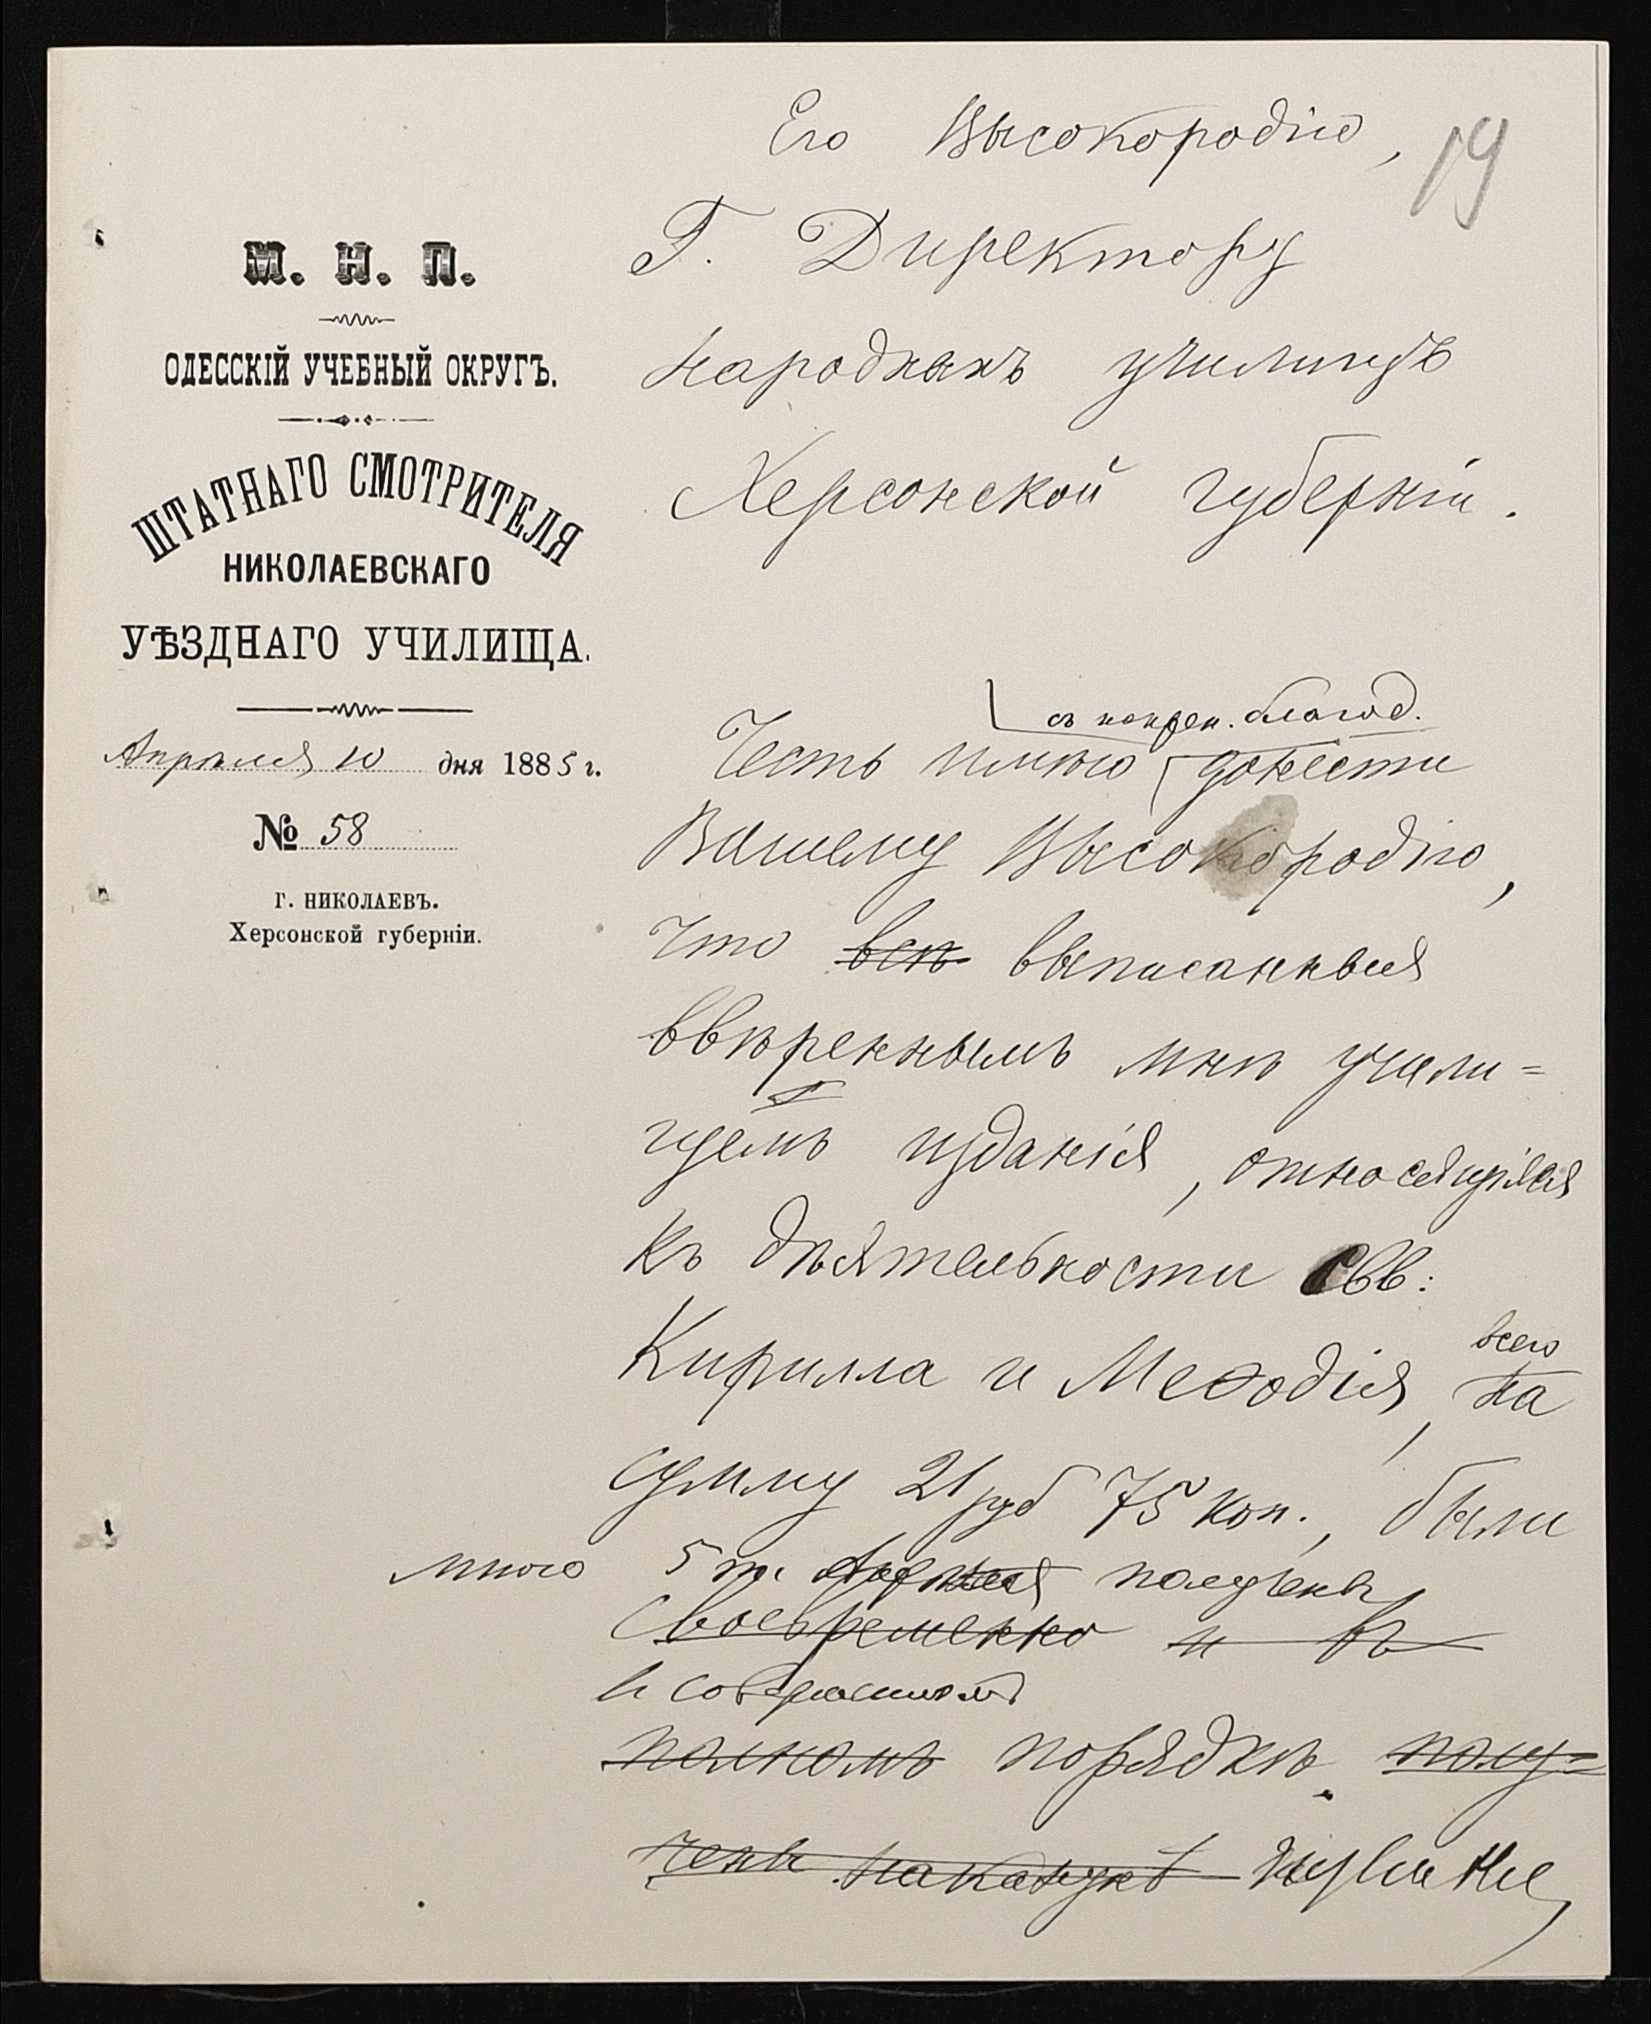 19
М. Н. П.
ОДЕССКІЙ УЧЕБНЫЙ ОКРУГЪ.
ШТАТНАГО СМОТРИТЕЛЯ
НИКОЛАЕВСКАГО
УѢЗДНАГО УЧИЛИЩА.
Апрѣля 10 дня 1885 г.
№ 58
Г. НИКОЛАЕВЪ.
Херсонской губерніи.
Его Высокородію,
Г. Директору
народныхъ училищъ
Херсонской губерніи.
благод.
Честь имѣю донести
Вашему Высокородію,
что всѣ выписанныя
ввѣреннымъ мнѣ учили=
щемъ изданія, относящіяся
къ дѣятельности Свв:
Кирилла и Меѳодія, на
всего
сумму 21 руб 75 коп., были
мною 5 т. Апрѣля получены
своевременно и въ
и совершенномъ
полномъ порядкѣ. полу=
чены наканунѣ